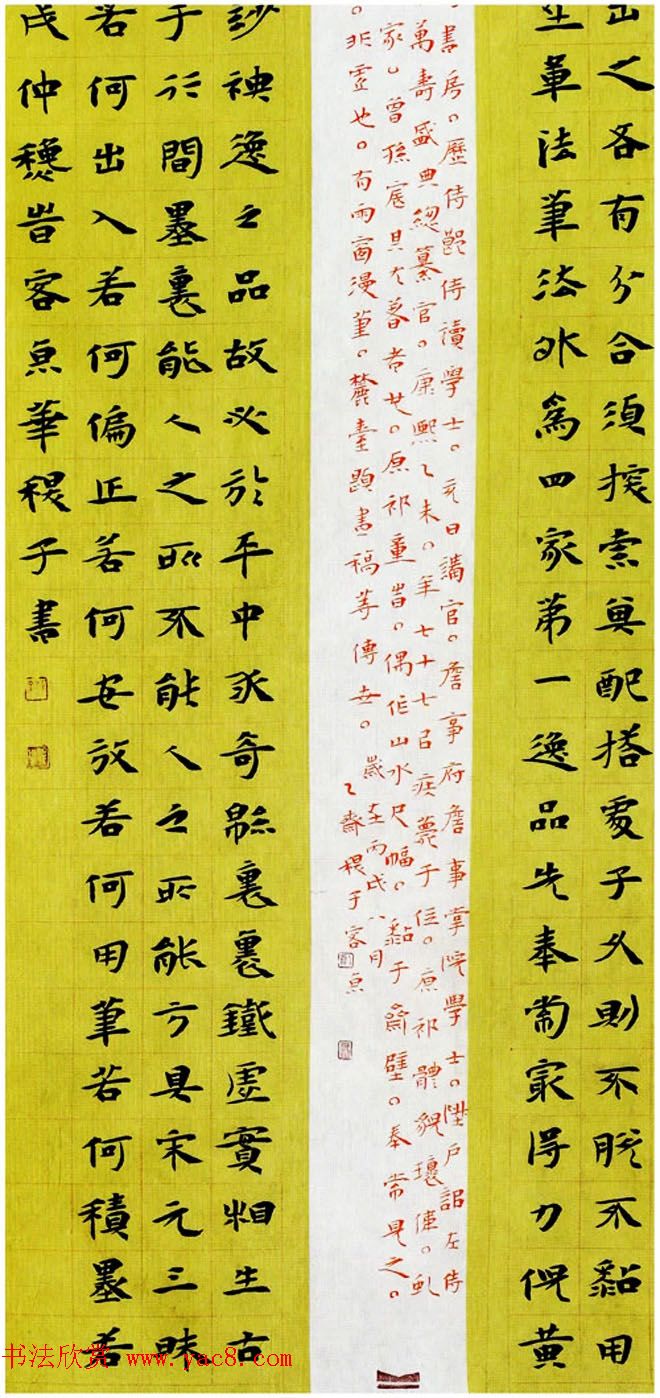 出之各有分合須探索其配搭處子久則不脫不黏用
章法筆法外為四家第一逸品先奉常最得力倪黃
書房。歷侍侍讀學士。充日講官。詹事府詹事掌院學士。陞戶部左侍
萬壽盛典總纂官。康熙乙未。年七十七以疾薨于位。原祁體貌瓌偉。虬
家。曾孫宸其尤著者也。原祁童時。偶作山水尺幅。黏于齋壁。奉常見之。
。非虛也。有雨窗漫筆。麓臺題畫稿等傳世。歲在丙戌八月
乙齋稷子客京
妙神逸之品故必於平中求奇綿裏裹鐵虛實相生古
于行間墨裏能人之所不能人之所能方具宋元三昧
若何出入若何偏正若何安放若何用筆若何積墨若
戌仲穐時客京華稷子書
书法欣赏 www.yac8.com